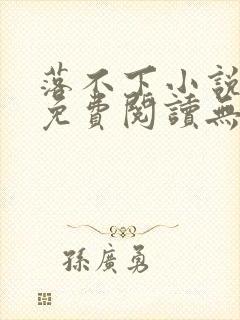 落不下小說
免費閱讀無
孫廣勇